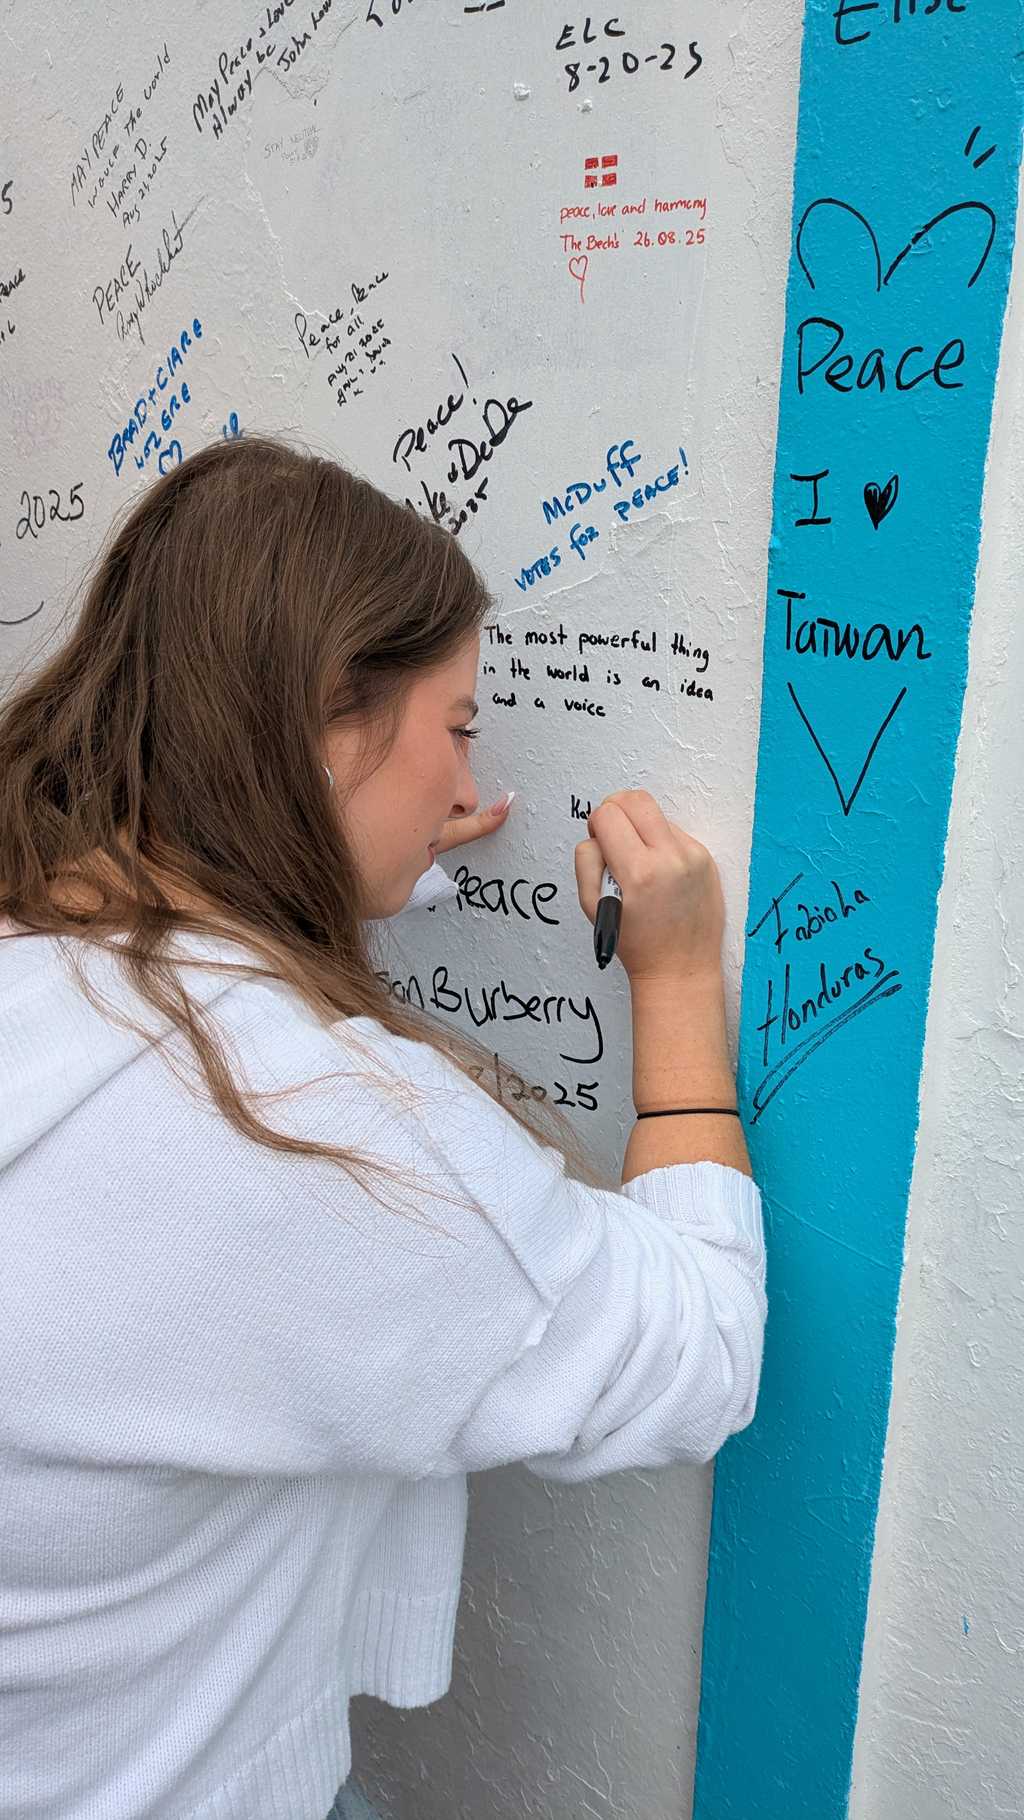 May Peace & Love
Always be
John
ELC
8-20-25
Elise
MAY PEACE
ENGULF THE WORLD
HARRY D.
AUG 21, 2025
STAY NEUTRAL
5
peace, love and harmony
The Bech's 26.08.25
PEACE
Peace, Peace
for all
AUG 21 2025
BRAD + CLARE
WOZ ERE
Peace!
Mike & DeDe
2025
2025
McDuff
VOTES for PEACE!
The most powerful thing
in the world is an idea
and a voice
Kat
Peace
Burberry
/2025
Peace
I ♥
Taiwan
Honduras